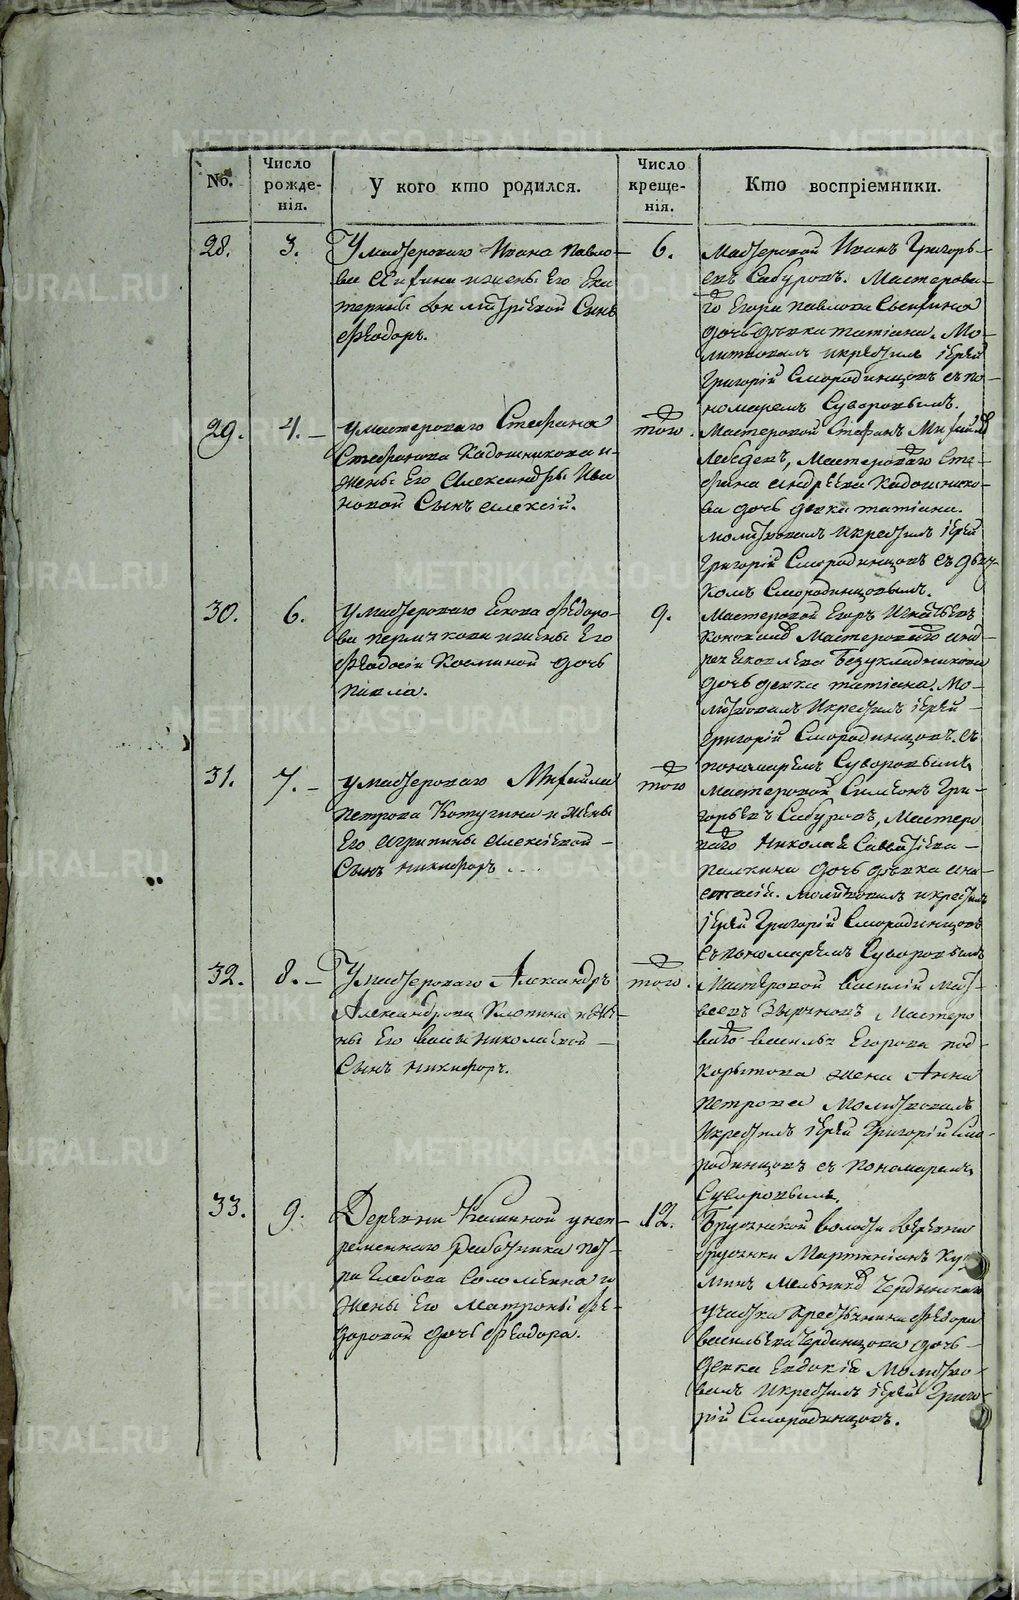 No.
Число рожде-нія.
У кого кто родился.
Число креще-нія.
Кто воспріемники.
28.
3.
У мастероваго Ивана Павло-
ва и жены Его Ека
терины Сынъ
Ѳеодоръ.
6.
Мастеровой Иванъ Григорь-
евъ Сабуровъ. Мастерова-
го Егора Павлова
дочь девка татіана. Мо-
литвовалъ икрестилъ іерей
Григорій Смородинцовъ съ по-
номаремъ Суворовымъ.
29.
4.
У мастероваго Стефана
Стефанова Кадошникова и
жены Его Александры Ива
новой Сынъ Алексій.
того.
Мастеровой Стефанъ
Лебедевъ, Мастероваго Сте-
фана Андреева Кадошнико-
ва дочь девка татіана.
молитвовалъ икрестилъ іерей
Григорій Смородинцовъ съ дьяч-
комъ Смородинцовымъ.
30.
6.
У мастероваго Ѳедоро-
ва и жены Его
Ѳеодосіи Козминой дочь
9.
Мастеровой Егоръ Игнатьевъ
Мастероваго Анд-
рея Яковлева Безукладникова
дочь девка татіана. Мо-
литвовалъ икрестилъ іерей
Григорій Смородинцовъ. съ
пономаремъ Суворовымъ
31.
7.
У мастероваго Михаила
Петрова Котугина и жены
Его Агрипины Алексіевой
Сынъ Никифоръ
того
Мастеровой Симеонъ Гри-
горьевъ Сабуровъ, Мастеро
ваго Николая Савватіева
Палкина дочь девка Ана-
стасія. молитвовалъ икрестилъ
іерей Григорій Смородинцовъ
съ пономаремъ Суворовымъ
32.
8.
У мастероваго Александръ
Александрова Клопина и же
ны Его Васы Николаевой
Сынъ Никифоръ.
того.
Мастеровой Василій Мат-
веевъ Зыряновъ Мастеро
ваго Василья Егорова под-
корытова жена Анна
Петрова Молитвовалъ
икрестилъ іерей Григорій Смо-
родинцовъ съ пономаремъ
Суворовымъ.
33.
9.
Деревни Калиной у неп
ременнаго работника пет-
ра Глебова Соломеина и
жены Его Матроны Ѳе-
доровой дочь Ѳеодора.
12.
Брусянской волости деревни
брусянки Мартиніанъ Куз
минъ
участка крестьянина Ѳедора
васильева Чердынцова дочь
девка Евдокія Молитво-
валъ икрестилъ іерей Григо-
рій Смородинцовъ.
METRIKI.GASO-URAL.RU